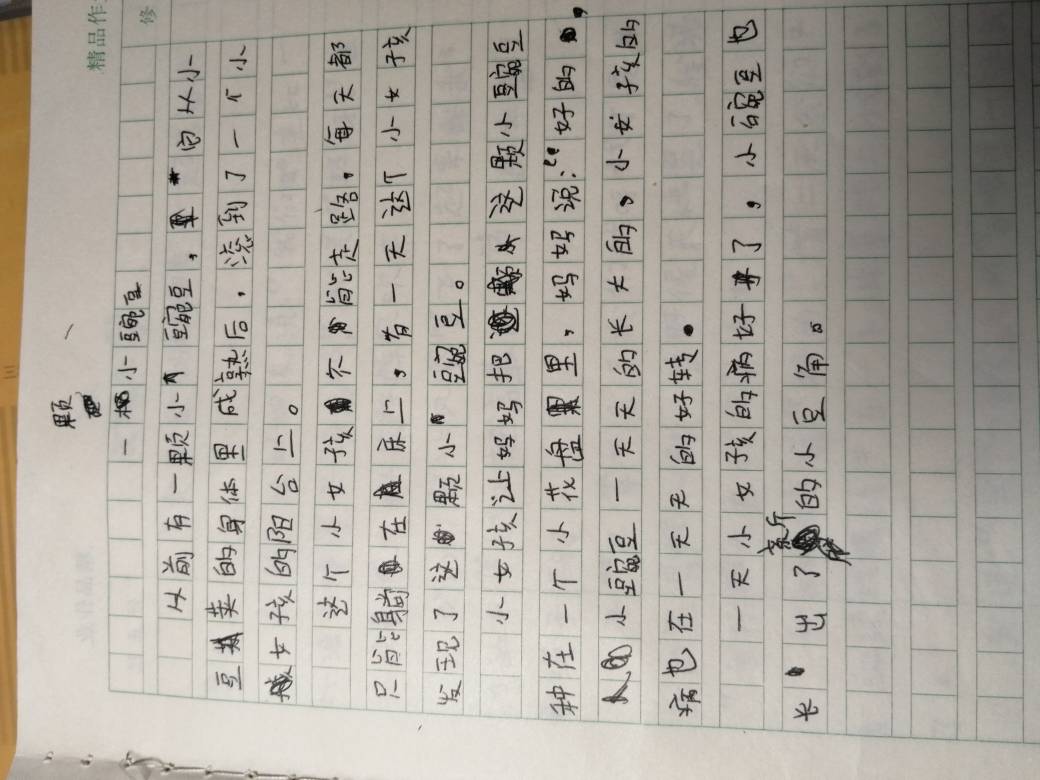 精品作
修
一颗小豌豆
以前有一颗小豌豆，它从小
豆荚的身体里成熟后，滚到了一个小
女孩的阳台上。
这个小女孩不能走路，每天都
只能躺在床上，有一天这个小女孩
发现了这颗小豌豆。
小女孩让妈妈把这颗小豌豆
种在一个小花盘里，妈妈说：“好的，
小豌豆一天天的长大的，小女孩的
病也在一天天的好转。
一天小女孩的病好了，小豌豆也
长出了新的小豆角。